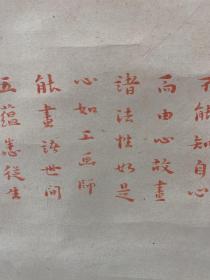 不能知自心
而由心故畫
諸法性如是
心如工画師
能畫諸世間
五蘊悉從生